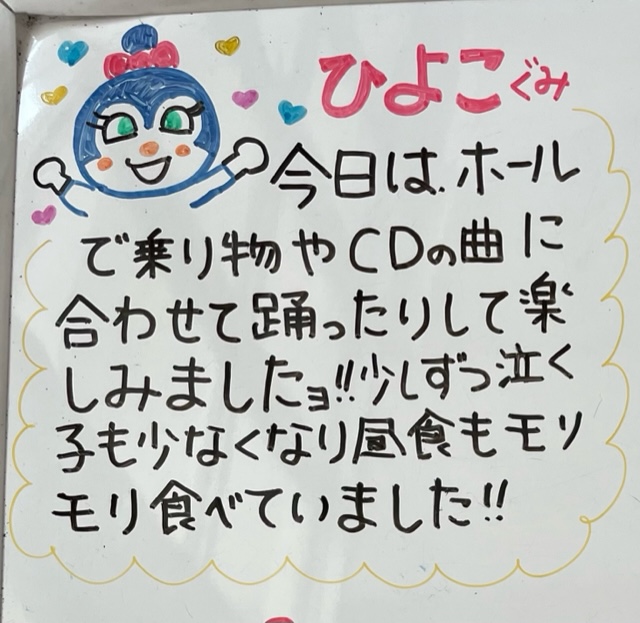 ひよこぐみ
今日は、ホール
で乗り物やCDの曲に
合わせて踊ったりして楽
しみましたョ!!少しずつ泣く
子も少なくなり昼食もモリ
モリ食べていました!!